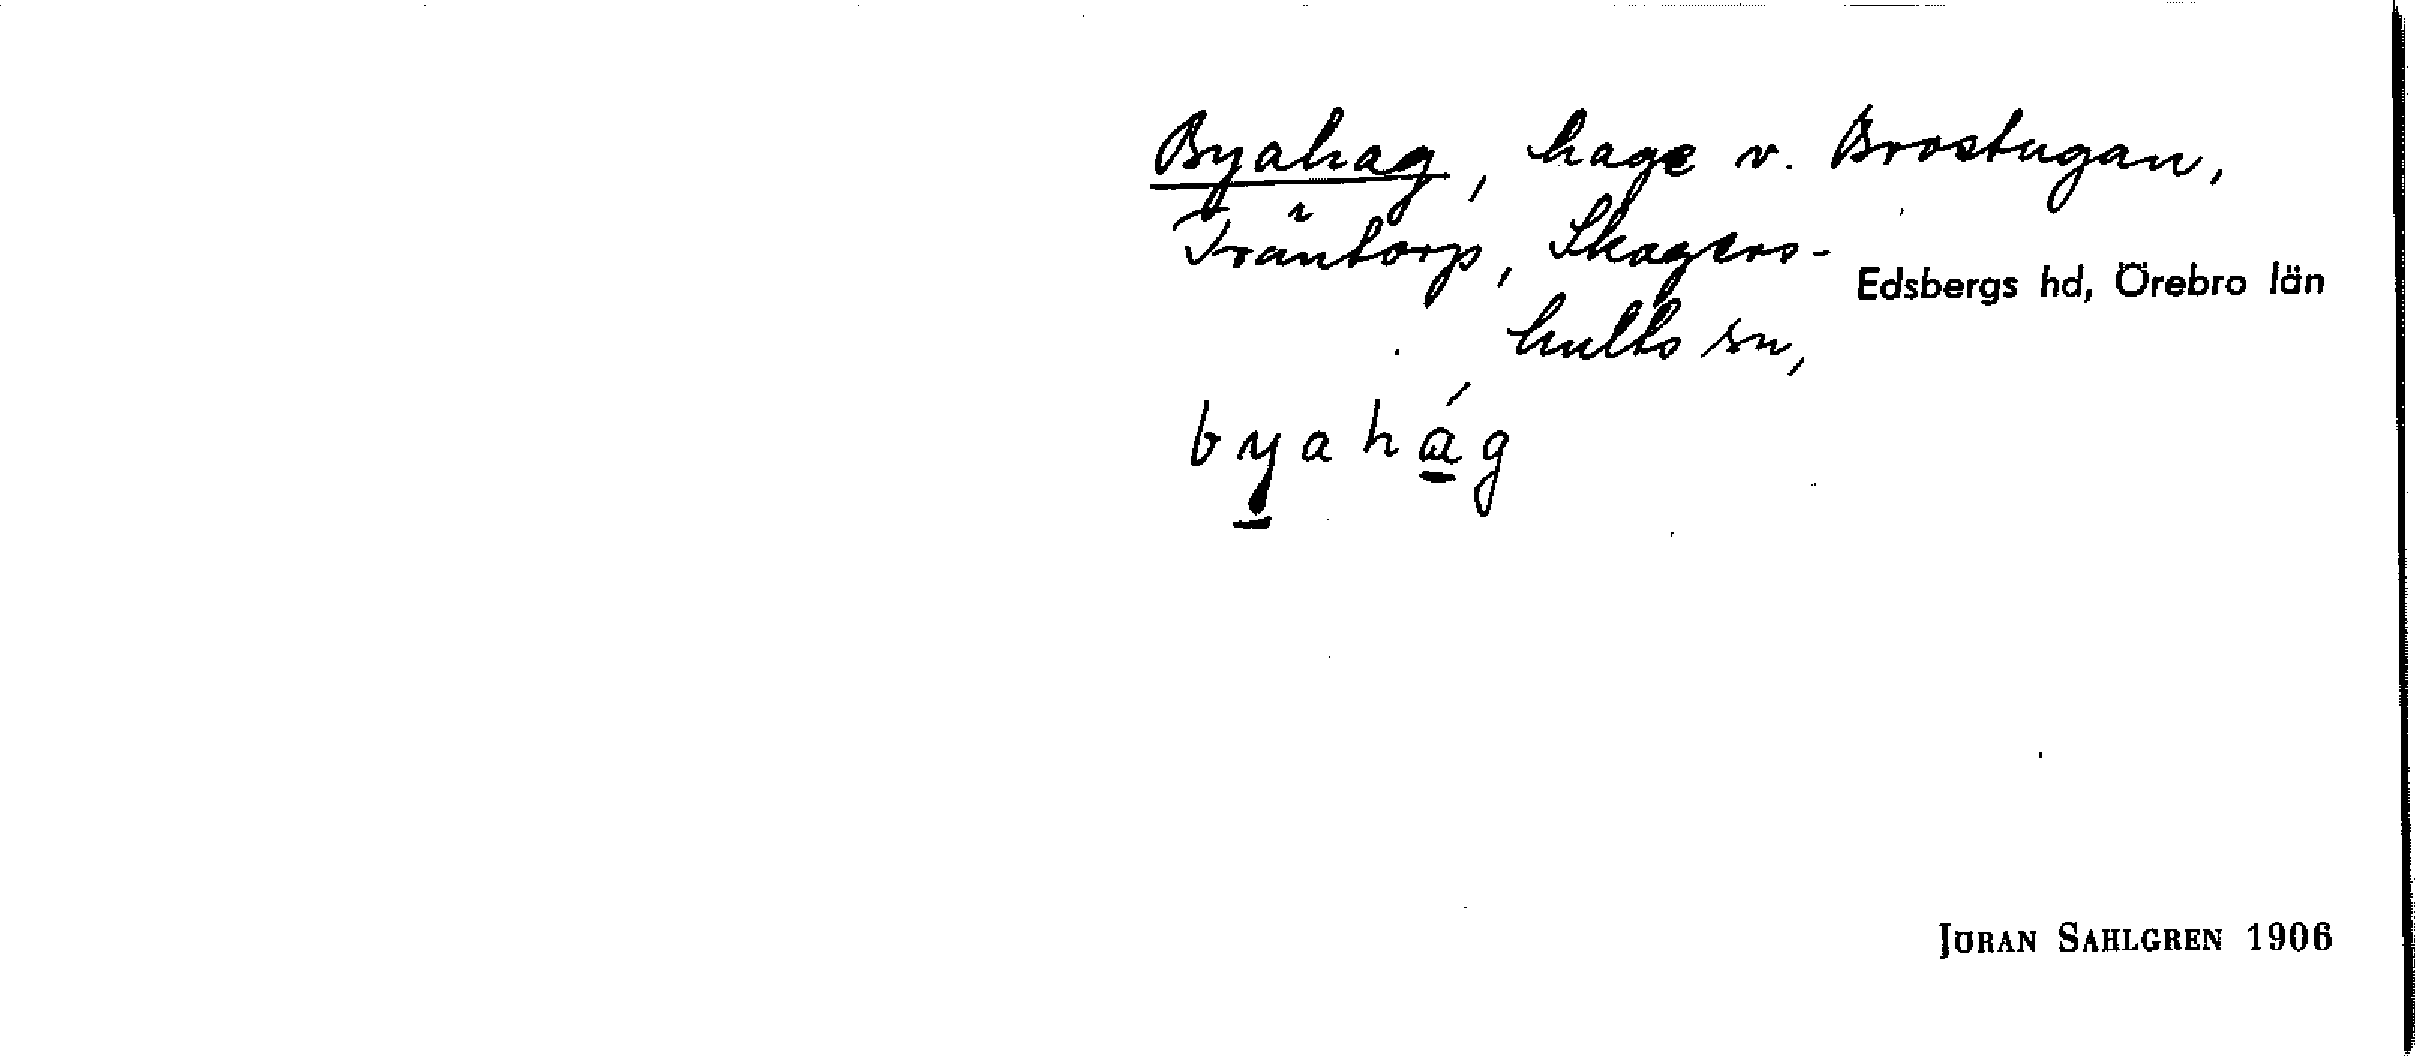 Byahag, hage v. Brostugan,
Träntorp, Skagers-
Edsbergs hd, Örebro län
hults sn,
byahág
JÖRAN SAHLGREN 1906